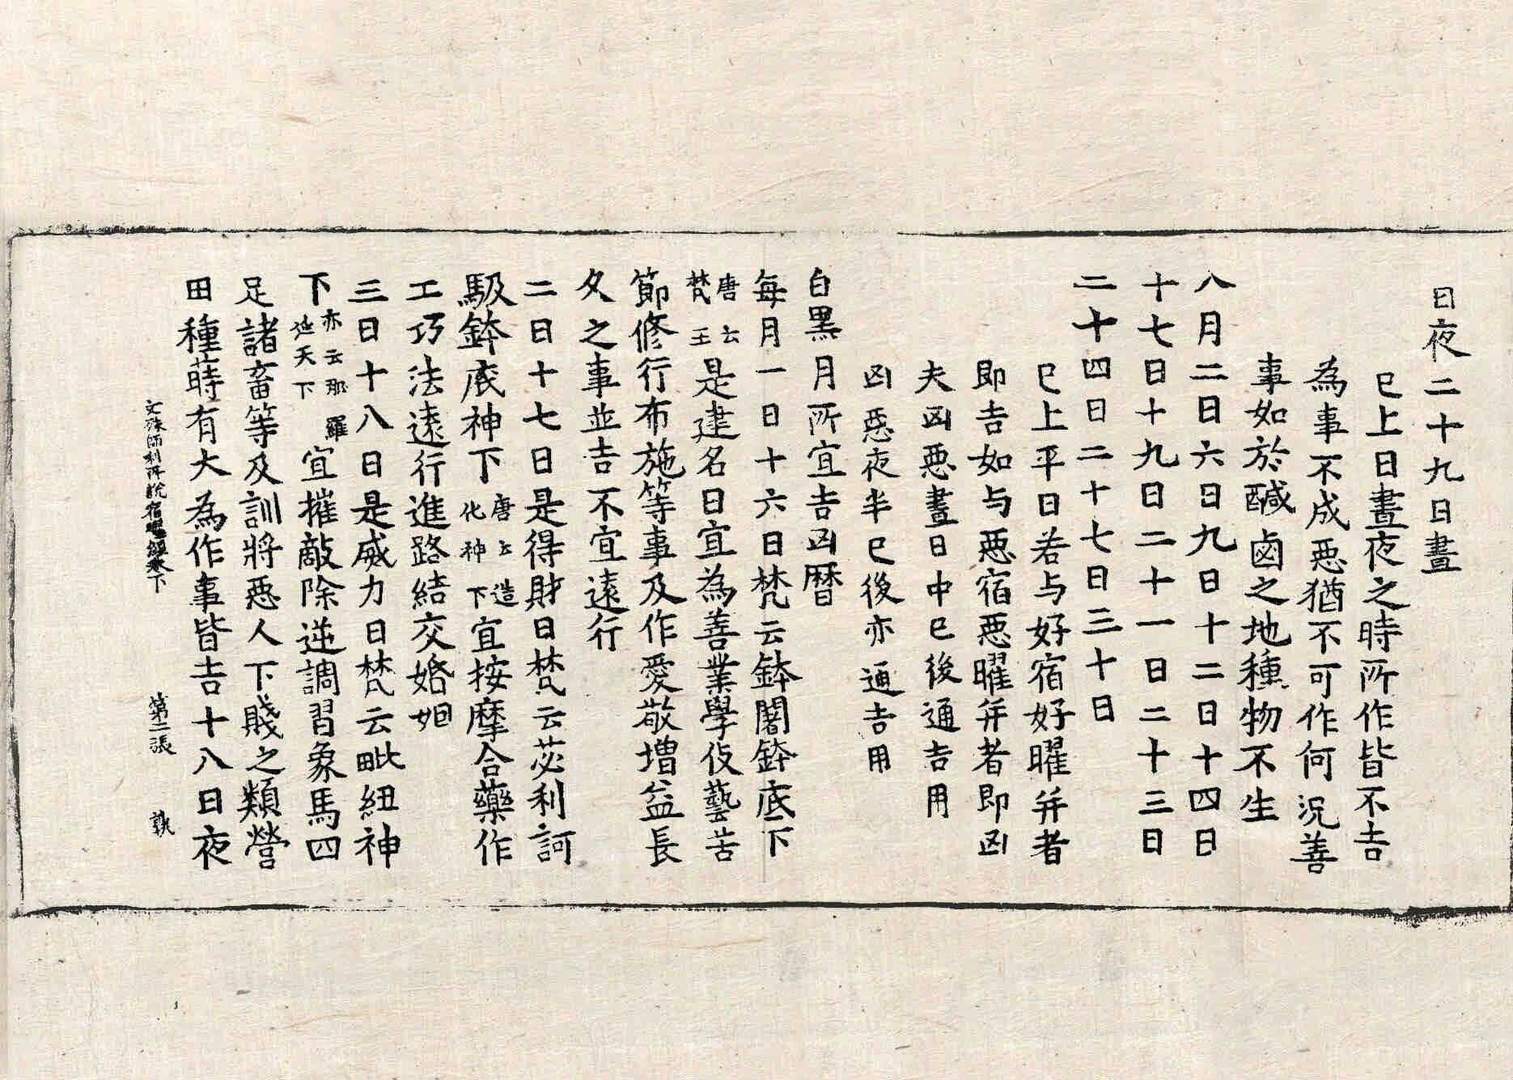 日夜二十九日晝
已上日晝夜之時所作皆不吉
為事不成惡猶不可作何況善
事如於醎鹵之地種物不生
八月二日六日九日十二日十四日
十七日十九日二十一日二十三日
二十四日二十七日三十日
已上平日若与好宿好曜并者
即吉如与惡宿惡曜并者即凶
夫凶惡晝日中已後通吉用
凶惡夜半已後亦通吉用
白黑月所宜吉凶曆
每月一日十六日梵云鉢闍鉢底下
唐云梵王是建名日宜為善業學伎藝苦
節修行布施等事及作愛敬增益長
久之事並吉不宜遠行
二日十七日是得財日梵云苾利訶
馺鉢底神下唐云造化神下宜按摩合藥作
工巧法遠行進路結交婚姻
三日十八日是威力日梵云毗紐神
下亦云那羅延天下宜摧敵除逆調習象馬四
足諸畜等及訓將惡人下賤之類營
田種蒔有大為作事皆吉十八日夜
文殊師利所說宿曜經卷下 第二張